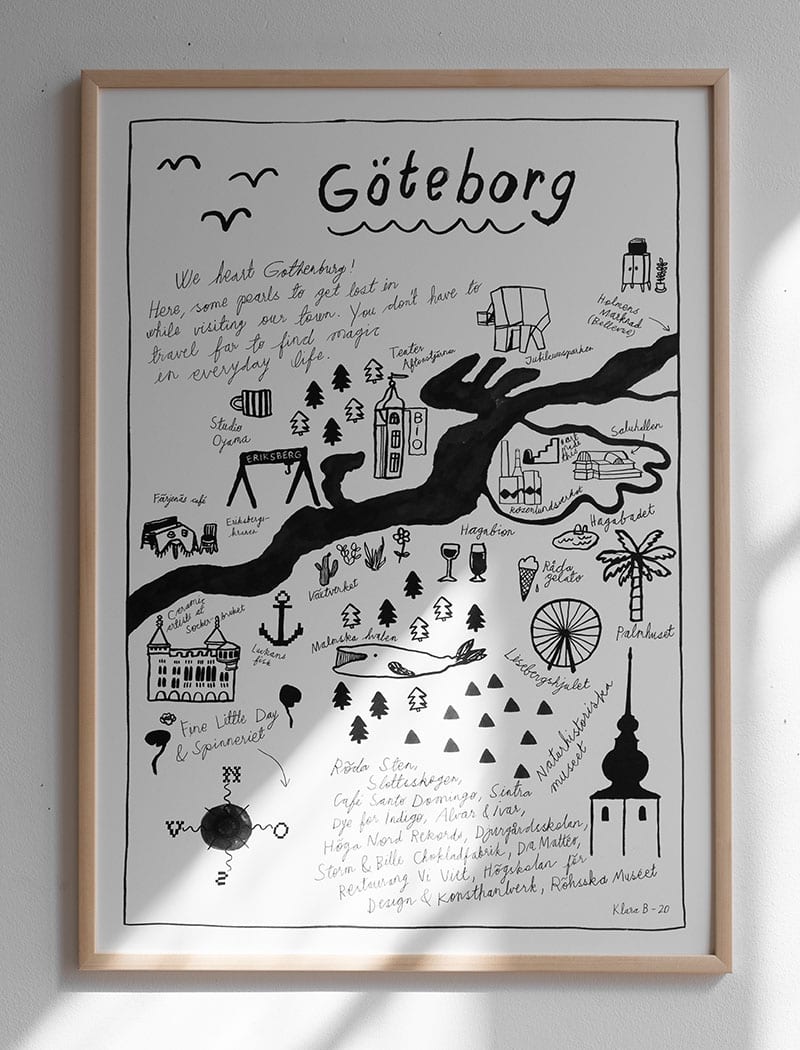 Göteborg
We heart Gothenburg!
Here, some pearls to get lost in
while visiting our town. You don't have to
travel far to find magic
en everyday life.
Holmens
Marknad
(Bellevue)
Jubileumsparken
Teater
Aftonstjärnan
BIO
Studio
Oyama
ERIKSBERG
Eriksbergs-
kranen
Färjenäs café
Saluhallen
Rosenlundsverket
Hagabadet
Hagabion
Råda
gelato
Palmhuset
Växtverket
Ceramic
artists at
Sockerbruket
Lukans
fisk
Malmska valen
Lisebergshjulet
Naturhistoriska
museet
Fine Little Day
& Spinneriet
N
V
O
S
Röda Sten,
Slottsskogen,
Café Santo Domingo, Sintra
Dye for Indigo, Alvar & Ivar,
Höga Nord Rekords, Djurgårdsskolan,
Storm & Bille Chokladfabrik, Da Matteo,
Restaurang Vi Vill, Högskolan för
Design & Konsthantwerk, Röhsska Muséet
Klara B - 20